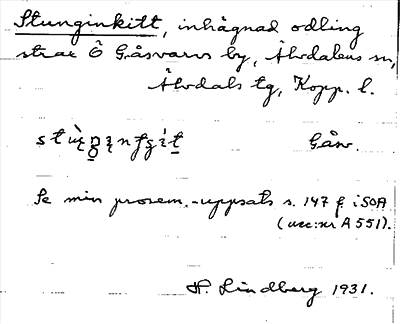 Stunginkitt, inhägnad odling
strax Ö Gåsvarvs by, Älvdalens sn,
Älvdals tg, Kopp. l.
Gåsv.
Se min prosem.-uppsats s. 147 f. i SOA
(acc:nr A 551).
H. Lindberg 1931.